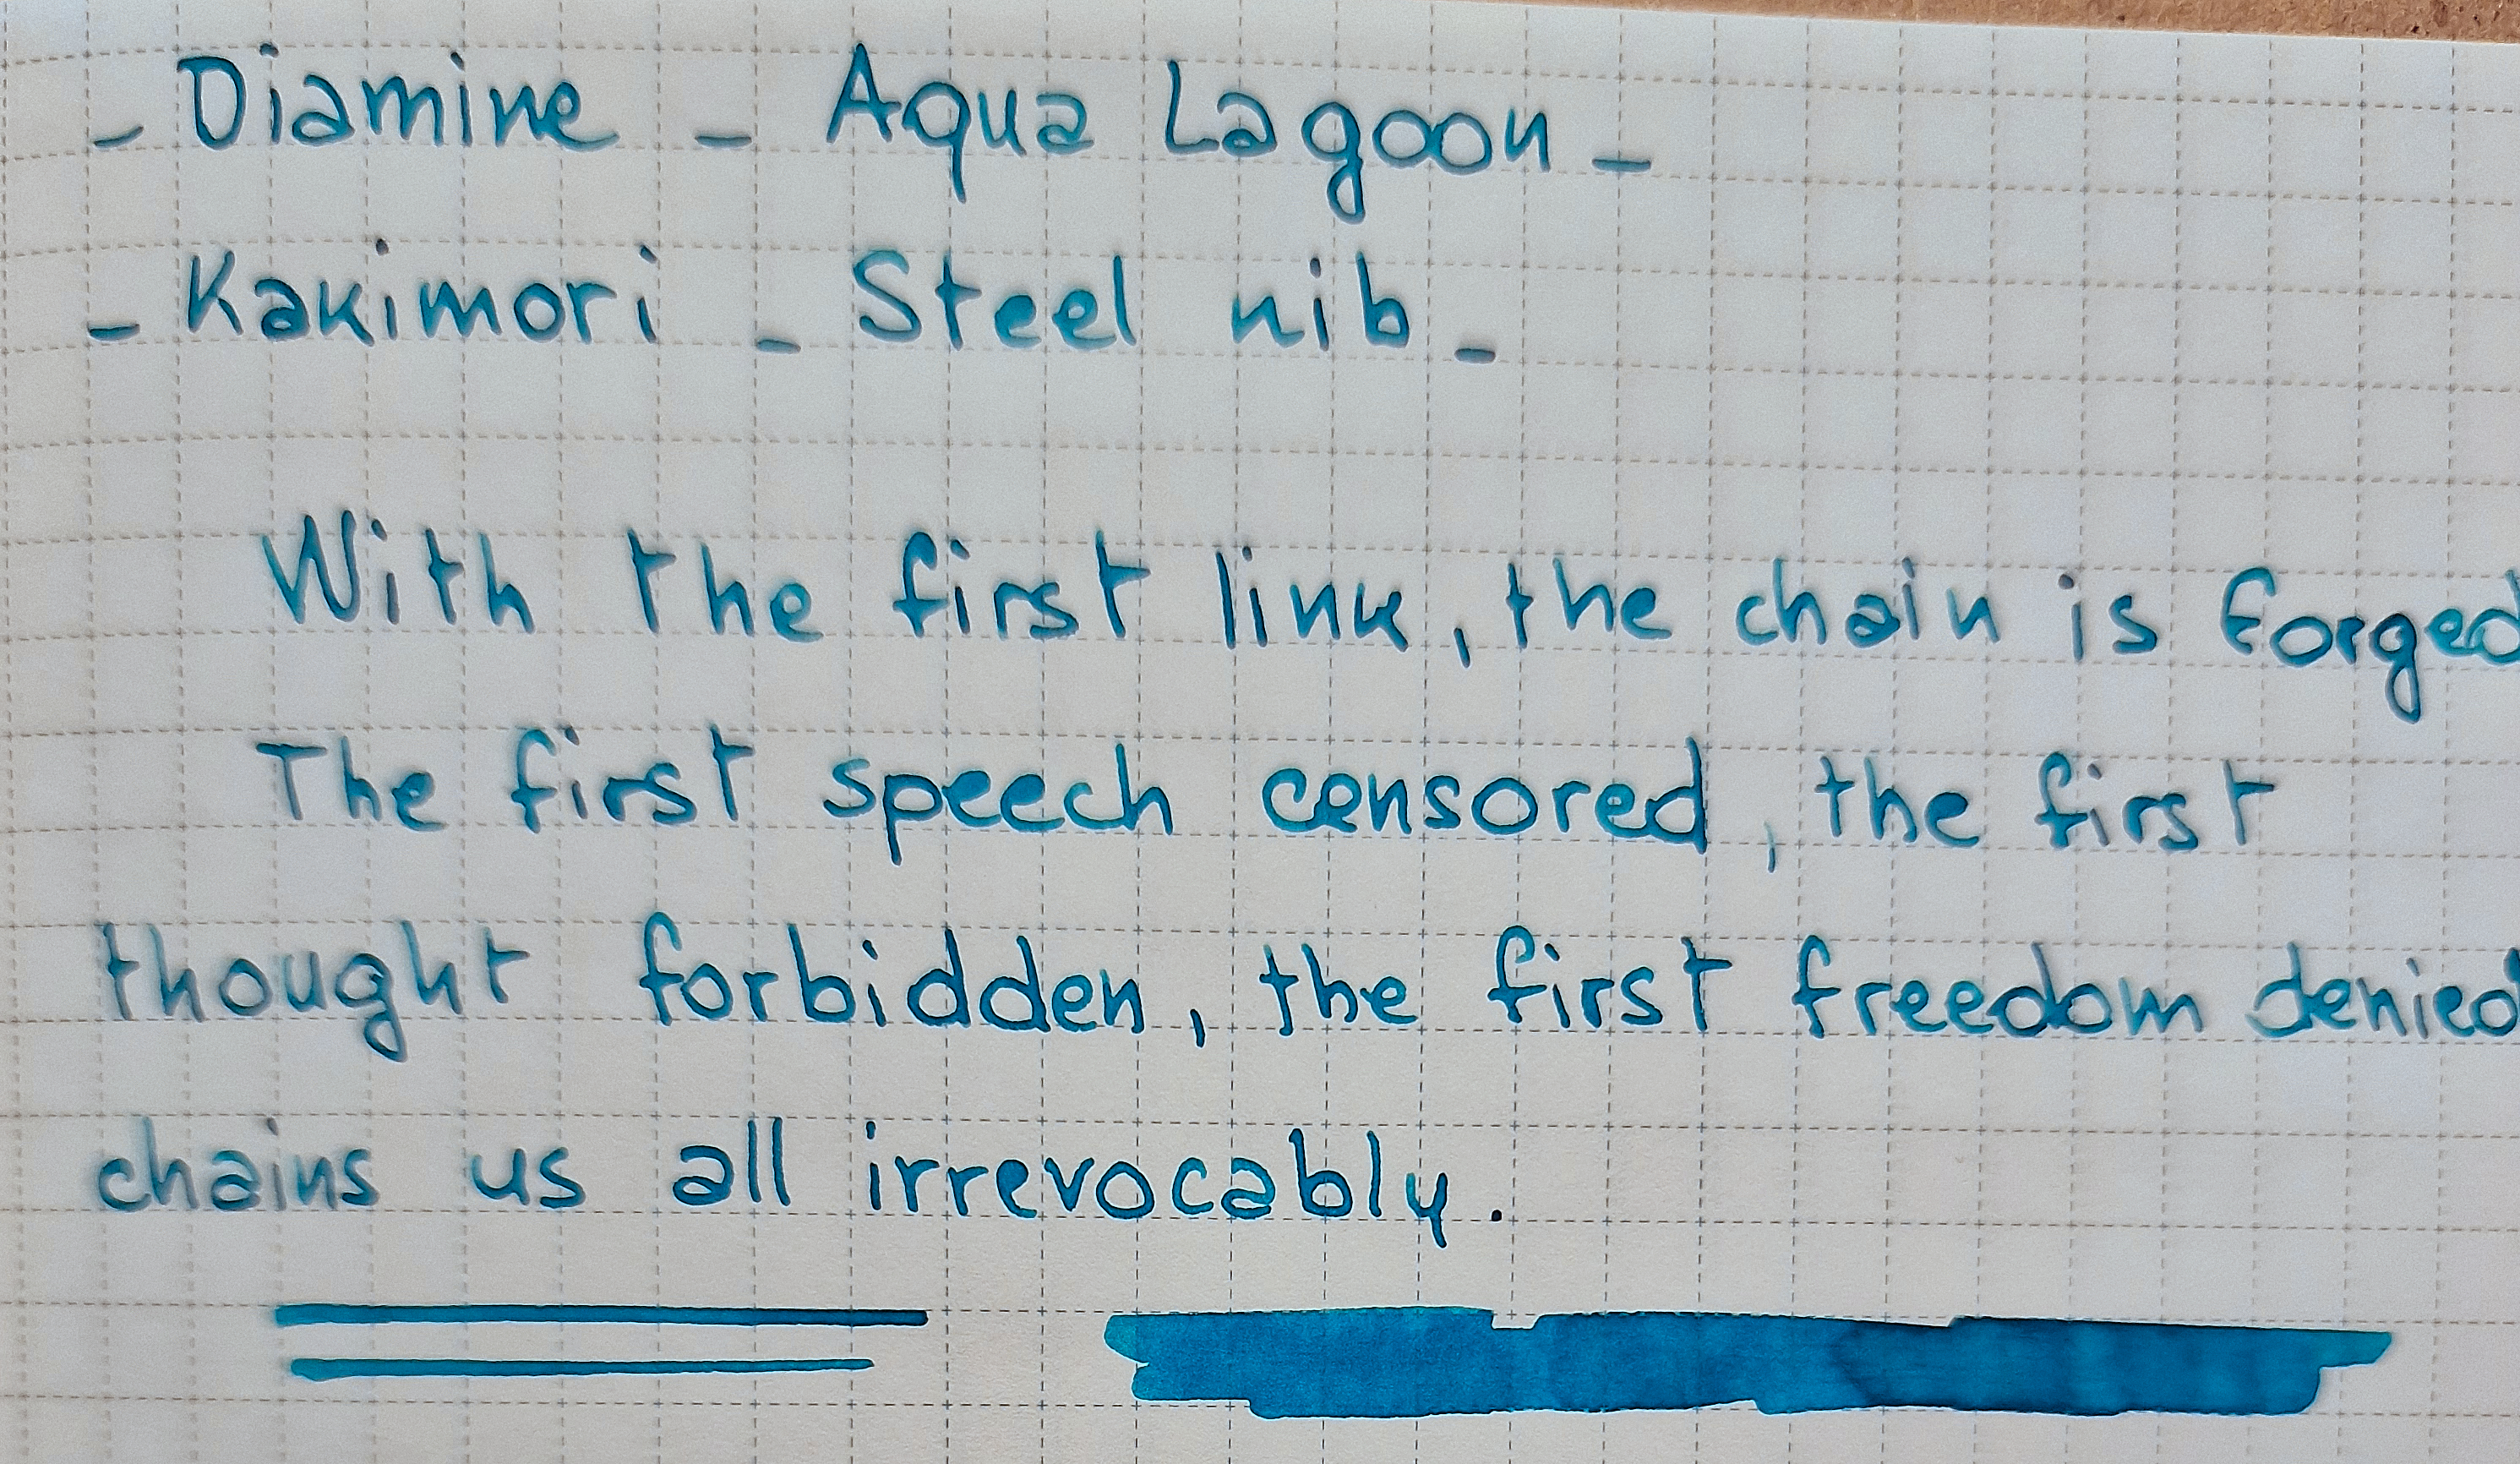 - Diamine - Aqua Lagoon -
- Kakimori - Steel nib -
With the first link, the chain is forged
The first speech censored, the first
thought forbidden, the first freedom denied
chains us all irrevocably.